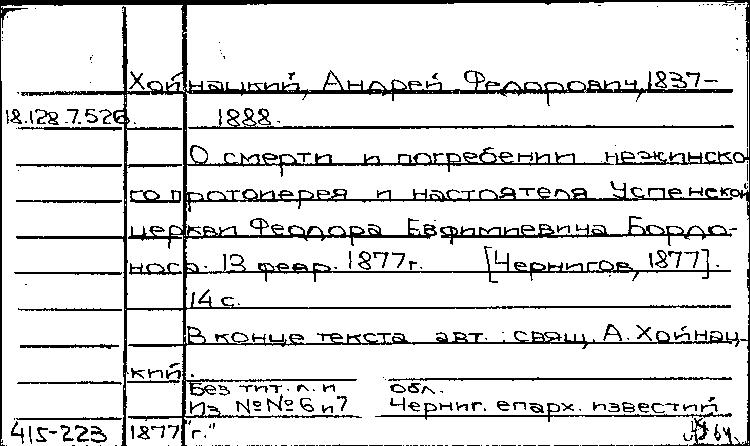 Хойнацкий, Андрей Федорович, 1837-
18.128.7.526. 1888.
О смерти и погребении нежинско-
го протоиерея и настоятеля Успенской
церкви Феодора Евфимиевича Бордо-
носа. 13 февр. 1877г. [Чернигов, 1877].
14 с.
В конце текста авт.: свящ. А. Хойнац-
кий.
Без тит. л. и обл.
Из №№ 6 и 7 Черниг. епарх. известий
415-223 1877 "г."
64